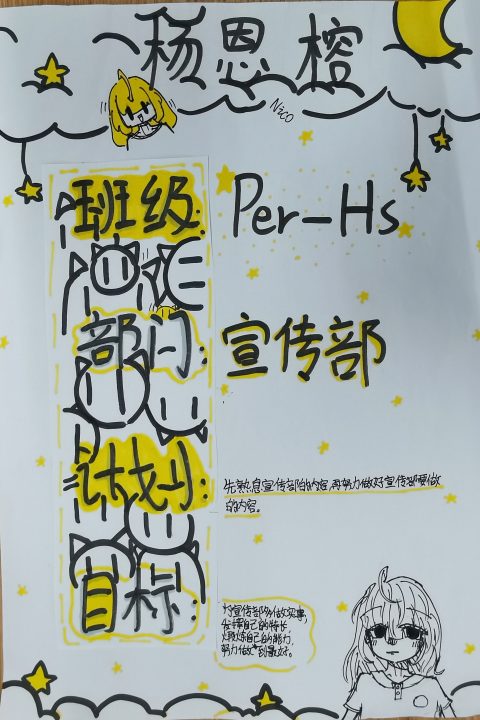 杨恩榕
Nico
班级: Per-Hs
部门: 宣传部
计划:
先熟息宣传部的内容,再努力做好宣传部要做
的内容。
目标:
为宣传部多做实事,
发挥自己的特长,
锻炼自己的能力,
努力做到最好。